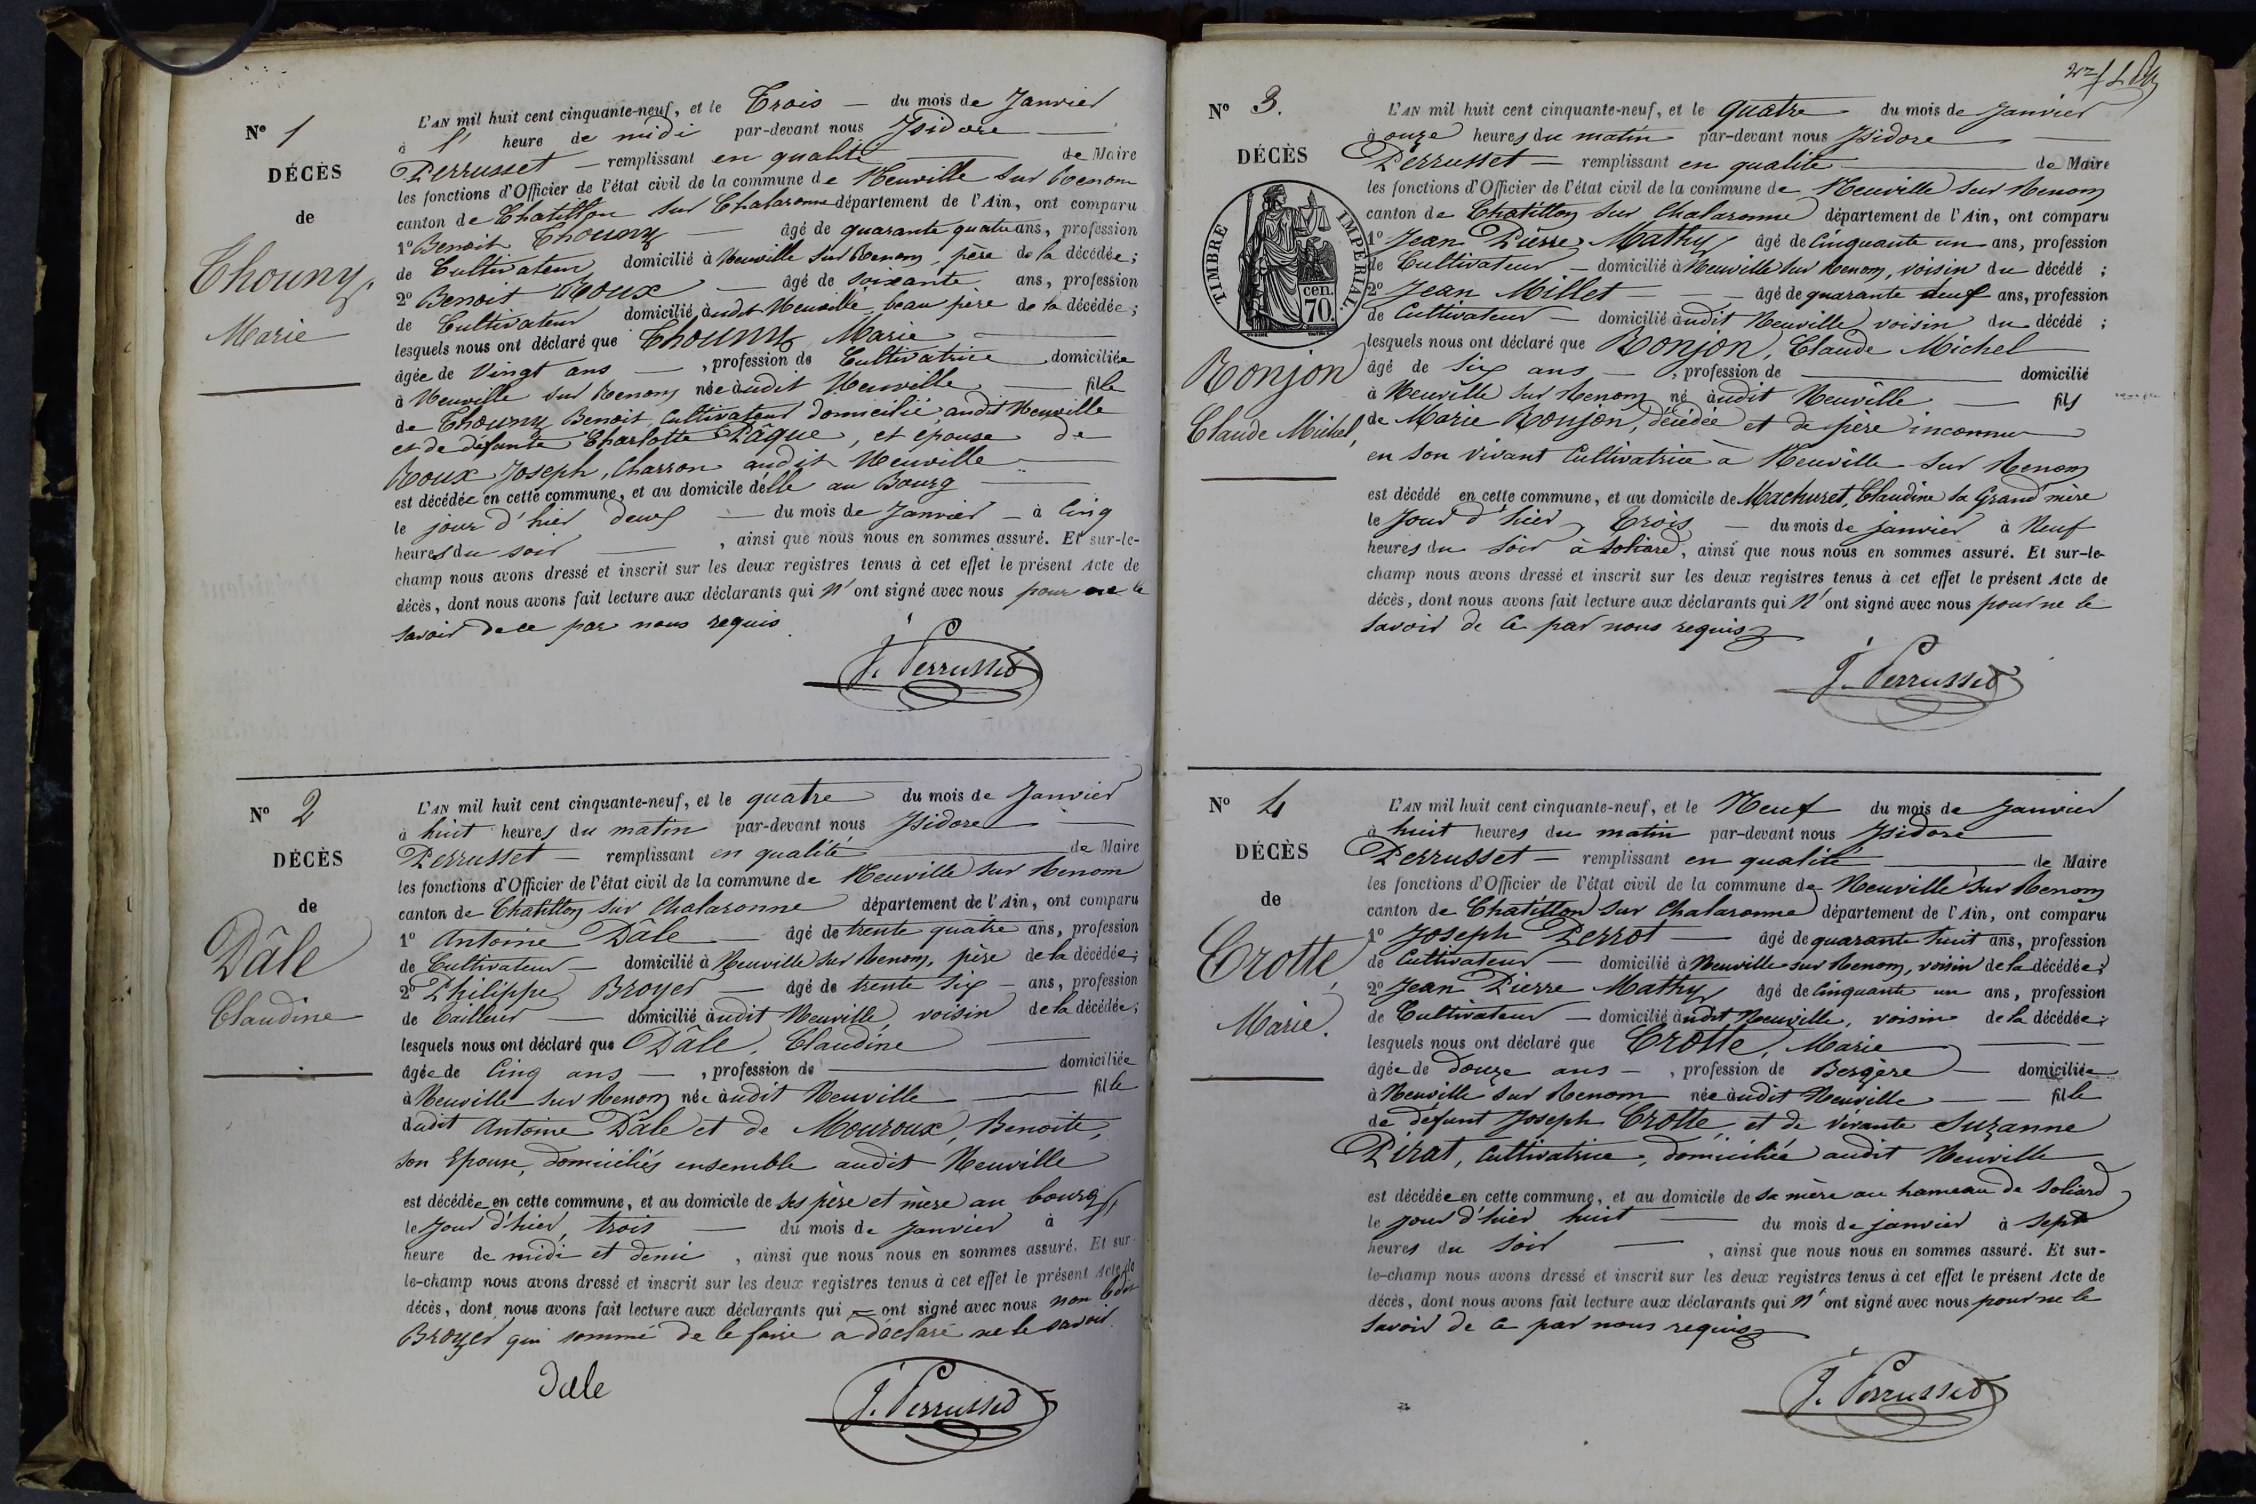 N° 1
DÉCÈS
de
Thouny,
Marie
L'AN mil huit cent cinquante-neuf, et le Trois du mois de Janvier
à 1' heure de midi par-devant nous Isidore
Perrusset remplissant en qualité de Maire
les fonctions d'Officier de l'état civil de la commune de Neuville sur Renom
canton de Chatillon sur Chalaronne département de l'Ain, ont comparu
1° Benoit Thouny âgé de quarante quatre ans, profession
de Cultivateur domicilié à Neuville sur Renom, père de la décédée;
2° Benoit Roux âgé de soixante ans, profession
de Cultivateur domicilié audit Neuville, beau père de la décédée;
lesquels nous ont déclaré que Thouny, Marie
âgée de vingt ans, profession de Cultivatrice domiciliée
à Neuville sur Renom née audit Neuville fille
de Thouny Benoit, Cultivateur domicilié audit Neuville
et de défunte Charlotte Pâque, et épouse de
Roux Joseph, Charron audit Neuville
est décédée en cette commune, et au domicile d'elle au Bourg
le jour d'hier deux du mois de Janvier à Cinq
heures du soir, ainsi que nous nous en sommes assuré. Et sur-le-
champ nous avons dressé et inscrit sur les deux registres tenus à cet effet le présent Acte de
décès, dont nous avons fait lecture aux déclarants qui n'ont signé avec nous pour ne le
savoir de ce par nous requis.
J. Perrusset
N° 2
DÉCÈS
de
Dâle
Claudine
L'AN mil huit cent cinquante-neuf, et le quatre du mois de Janvier
à huit heures du matin par-devant nous Isidore
Perrusset remplissant en qualité de Maire
les fonctions d'Officier de l'état civil de la commune de Neuville sur Renom
canton de Chatillon sur Chalaronne département de l'Ain, ont comparu
1° Antoine Dâle âgé de trente quatre ans, profession
de Cultivateur domicilié à Neuville sur Renom, père de la décédée;
2° Philippe Broyer âgé de trente six ans, profession
de Tailleur domicilié audit Neuville, voisin de la décédée;
lesquels nous ont déclaré que Dâle, Claudine
âgée de Cinq ans, profession de domiciliée
à Neuville sur Renom née audit Neuville fille
dudit Antoine Dâle et de Mouroux, Benoite,
son Epouse, domiciliés ensemble audit Neuville
est décédée en cette commune, et au domicile de ses père et mère au bourg
le jour d'hier, trois du mois de Janvier à 1'
heure de midi et demi, ainsi que nous nous en sommes assuré. Et sur-
le-champ nous avons dressé et inscrit sur les deux registres tenus à cet effet le présent Acte de
décès, dont nous avons fait lecture aux déclarants qui ont signé avec nous non ledit
Broyer qui sommé de le faire a déclaré ne le savoir.
Dâle
J. Perrusset
N° 3.
DÉCÈS
TIMBRE IMPERIAL.
cen.
70.
Ronjon
Claude Michel,
L'AN mil huit cent cinquante-neuf, et le quatre du mois de Janvier
à onze heures du matin par-devant nous Isidore
Perrusset remplissant en qualité de Maire
les fonctions d'Officier de l'état civil de la commune de Neuville sur Renom
canton de Chatillon sur Chalaronne département de l'Ain, ont comparu
1° Jean Pierre Mathy âgé de Cinquante un ans, profession
de Cultivateur domicilié à Neuville sur Renom, voisin du décédé;
2° Jean Millet âgé de quarante neuf ans, profession
de Cultivateur domicilié audit Neuville, voisin du décédé;
lesquels nous ont déclaré que Ronjon, Claude Michel
âgé de Six ans, profession de domicilié
à Neuville sur Renom né audit Neuville fils
de Marie Ronjon, décédée et de père inconnu
en son vivant Cultivatrice à Neuville sur Renom
est décédé en cette commune, et au domicile de Machuret, Claudine sa Grand'mère
le Jour d'hier, Trois du mois de janvier à Neuf
heures du Soir à Soliard, ainsi que nous nous en sommes assuré. Et sur-le-
champ nous avons dressé et inscrit sur les deux registres tenus à cet effet le présent Acte de
décès, dont nous avons fait lecture aux déclarants qui n'ont signé avec nous pour ne le
savoir de ce par nous requis
J. Perrusset
N° 4
DÉCÈS
de
Crotte,
Marie.
L'AN mil huit cent cinquante-neuf, et le Neuf du mois de Janvier
à huit heures du matin par-devant nous Isidore
Perrusset remplissant en qualité de Maire
les fonctions d'Officier de l'état civil de la commune de Neuville sur Renom
canton de Chatillon sur Chalaronne département de l'Ain, ont comparu
1° Joseph Perrot âgé de quarante huit ans, profession
de Cultivateur domicilié à Neuville sur Renom, voisin de la décédée;
2° Jean Pierre Mathy âgé de Cinquante un ans, profession
de Cultivateur domicilié audit Neuville, voisin de la décédée;
lesquels nous ont déclaré que Crotte, Marie
âgée de douze ans, profession de Bergère domiciliée
à Neuville sur Renom née audit Neuville fille
de défunt Joseph Crotte, et de vivante Suzanne
Pirat, Cultivatrice, domiciliée audit Neuville
est décédée en cette commune, et au domicile de sa mère au hameau de Soliard
le jour d'hier huit du mois de janvier à Sept
heures du Soir, ainsi que nous nous en sommes assuré. Et sur-
le-champ nous avons dressé et inscrit sur les deux registres tenus à cet effet le présent Acte de
décès, dont nous avons fait lecture aux déclarants qui n'ont signé avec nous pour ne le
savoir de ce par nous requis
J. Perrusset